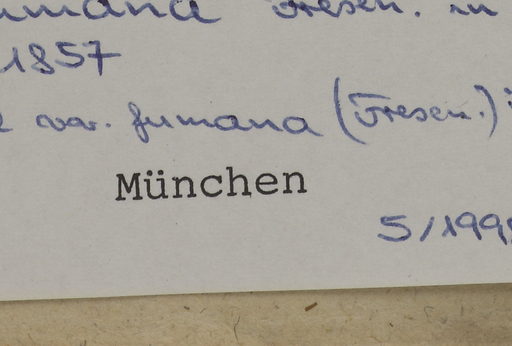 Fresen. in
1857
var. fumana (Fresen.)
München
5/199